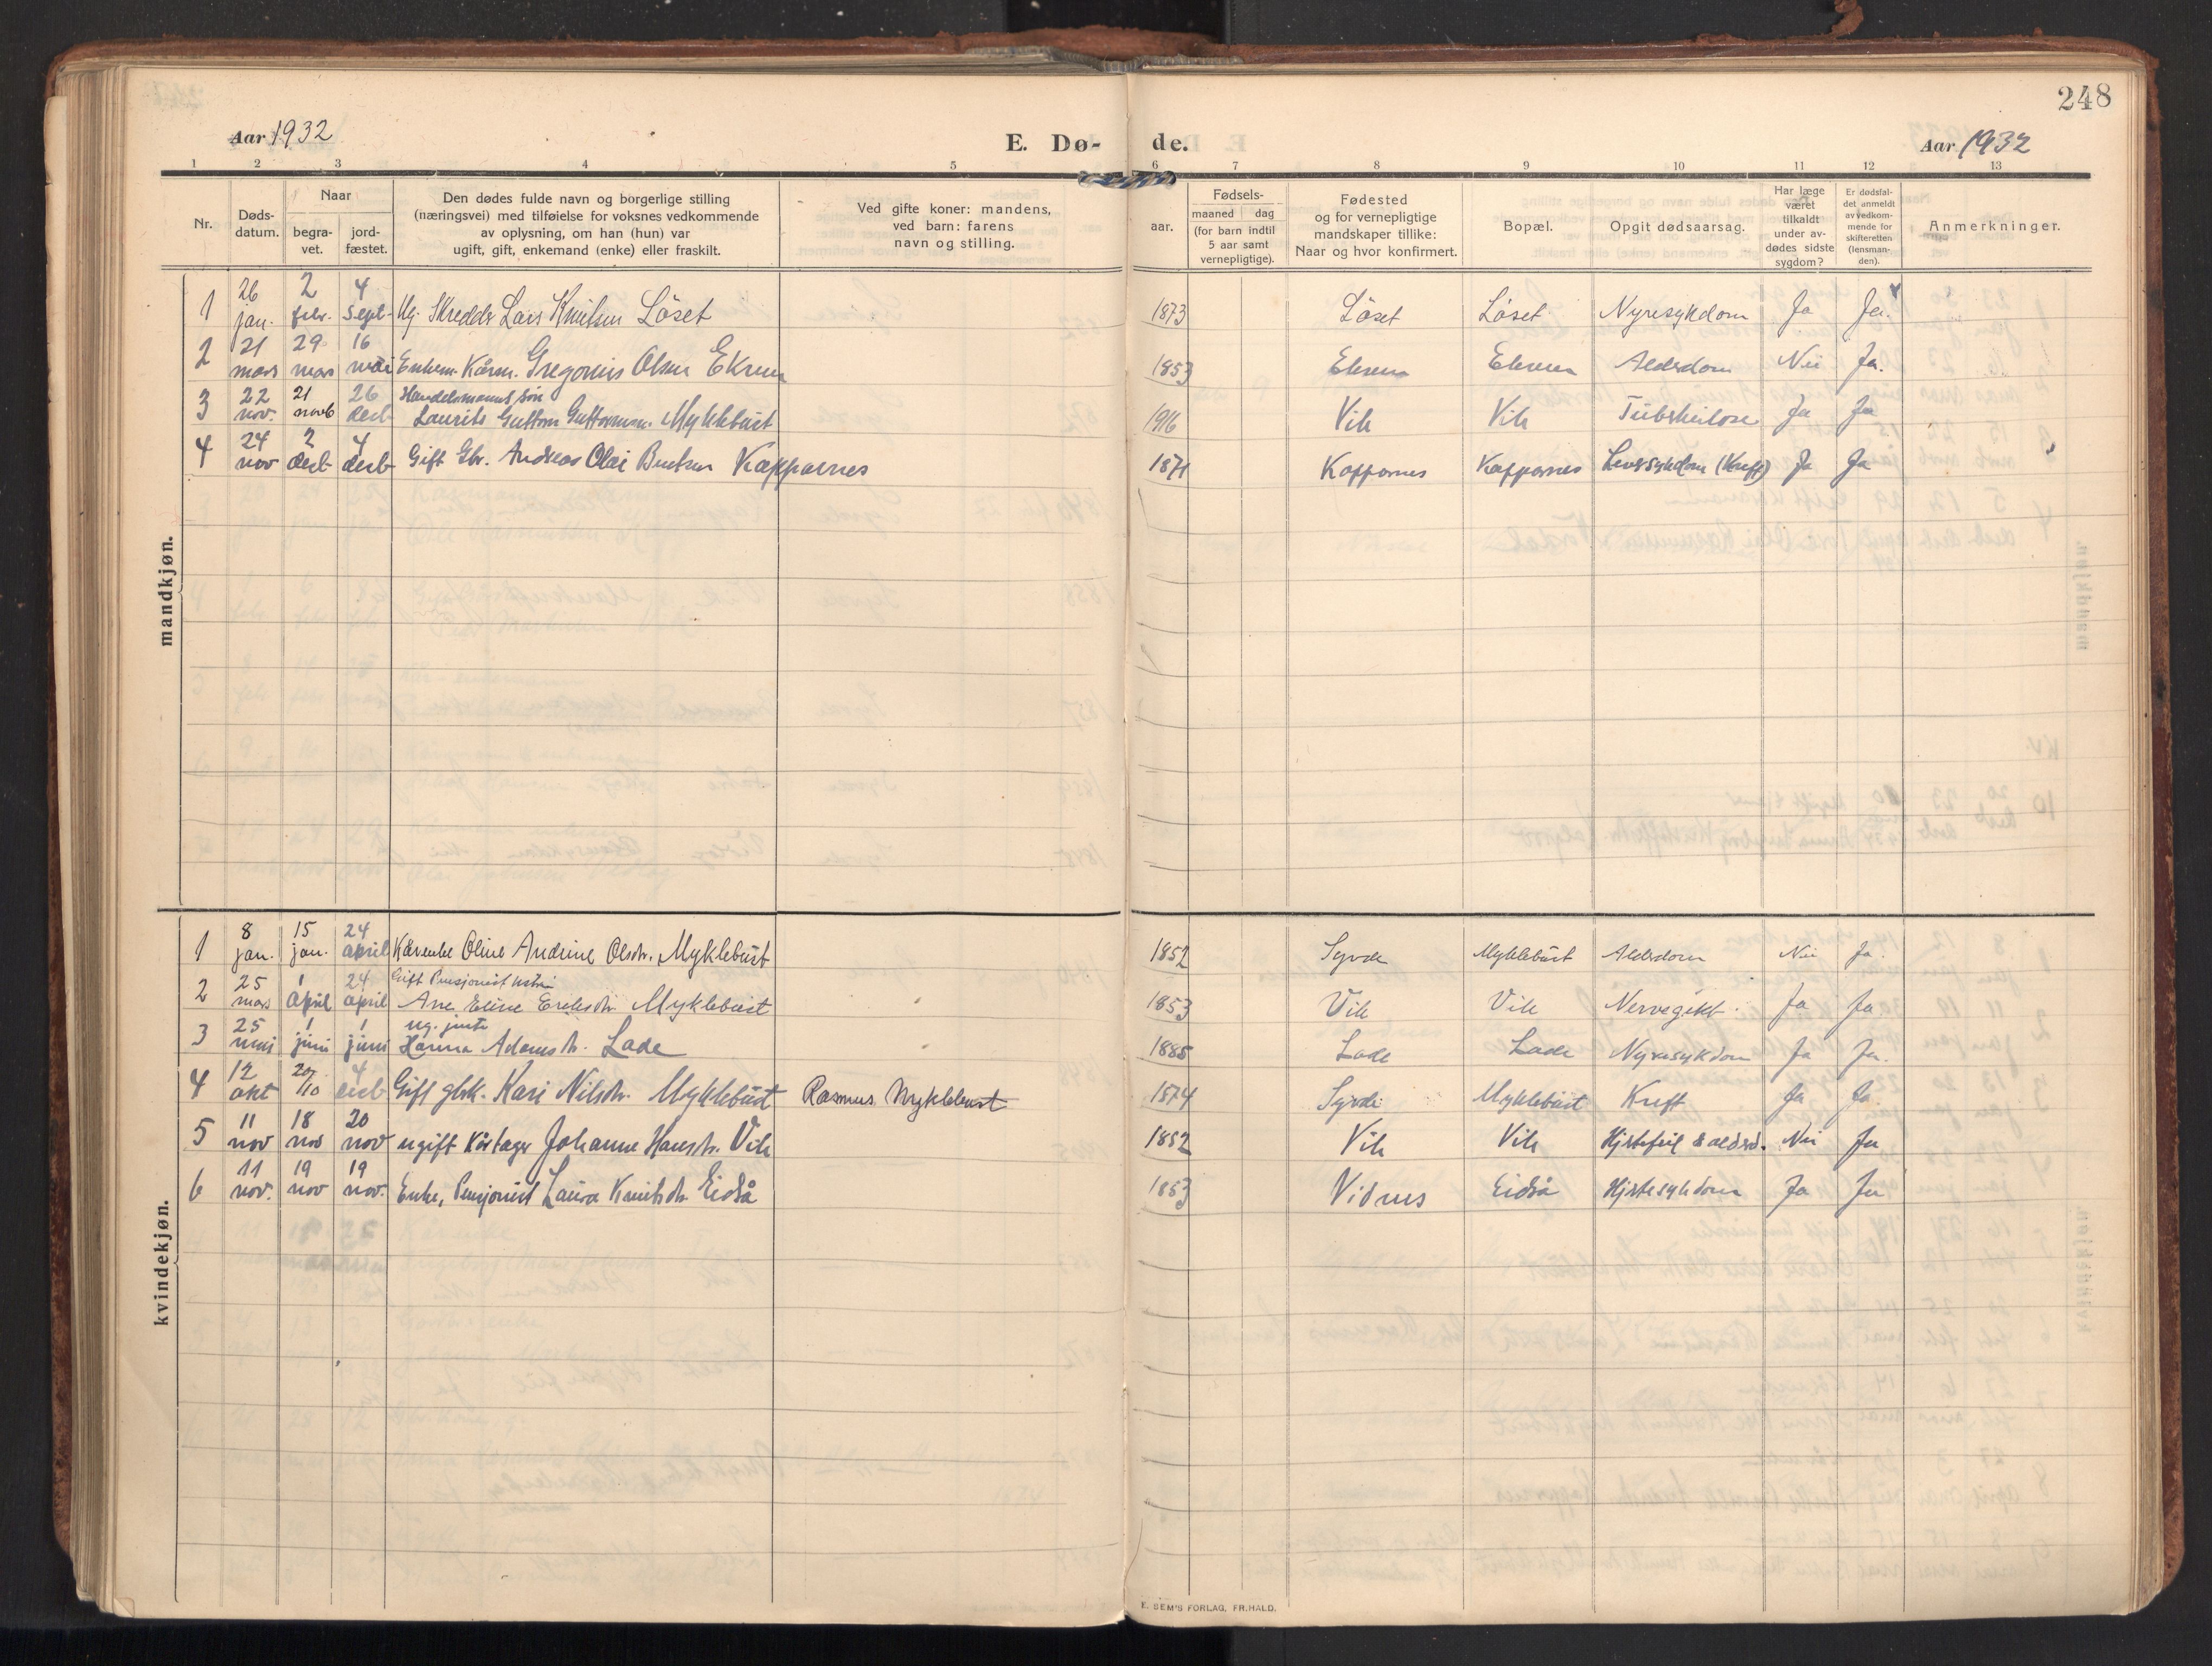 248
Aar 1932 E. Dø- de. Aar 1932
1 2 3 4 5 6 7 8 9 10 11 12 13
Nr. Døds-datum. Naar begra-vet. jord-fæstet. Den dødes fulde navn og borgerlige stilling (næringsvei) med tilføielse for voksnes vedkommende av oplysning, om han (hun) var ugift, gift, enkemand (enke) eller fraskilt. Ved gifte koner: mandens, ved barn: farens navn og stilling. aar. Fødsels- maaned dag (for barn indtil 5 aar samt vernepligtige). Fødested og for vernepligtige mandskaper tillike: Naar og hvor konfirmert. Bopæl. Opgit dødsaarsag. Har læge været tilkaldt under av-dødes sidste sygdom? Er dødsfal-det anmeldt av vedkom-mende for skifteretten (lensman-den). Anmerkninger.
mandkjøn.
1 26 jan. 2 febr. 4 sept. Ug. Skredder Lars Knutsen Løset 1873 Løset Løset Nyresykdom Ja Ja.
2 21 mars 29 mars 16 mai Enkem. Kårm. Gregorius Olsen Ekrem 1853 Ekrem Ekrem Alderdom Nei Ja.
3 22 nov. 21 novb 26 decb Handelsmanns søn Laurits Guttorm Guttormsen Myklebust 1916 Vik Vik Tuberkulose Ja Ja
4 24 nov 2 decb 4 decb Gift Gbr. Andreas Olai Kopparnes 1871 Koparnes Kopparnes Leversykdom (Kreft) Ja Ja
kvindekjøn.
1 8 jan. 15 jan. 24 april Kårenke Oline Andrine Olsdtr. Myklebust 1852 Syvde Myklebust Alderdom Nei Ja.
2 25 mars 1 april 24 april Gift Pensjonist Ane Eline Eriksdtr Myklebust 1853 Vik Vik Nervegikt Ja Ja
3 25 mai 1 juni 1 juni ug. jente Hanna Adamsdtr. Lade 1885 Lade Lade Nyresykdom Ja Ja.
4 12 okt 20/10 4 decb Gift gbk. Kari Nilsdtr. Myklebust Rasmus Myklebust 1874 Syvde Myklebust Kreft Ja Ja
5 11 nov 18 nov 20 nov ugift Kårtager Johanne Hansdtr. Vik 1852 Vik Vik Hjertefeil & alderd. Nei Ja
6 11 nov. 19 nov 19 nov. Enke, Pensjonist Laura Knutsdtr. Eidså 1853 Vidnes Eidså Hjertesykdom Ja Ja
E. SEM'S FORLAG, FR.HALD.